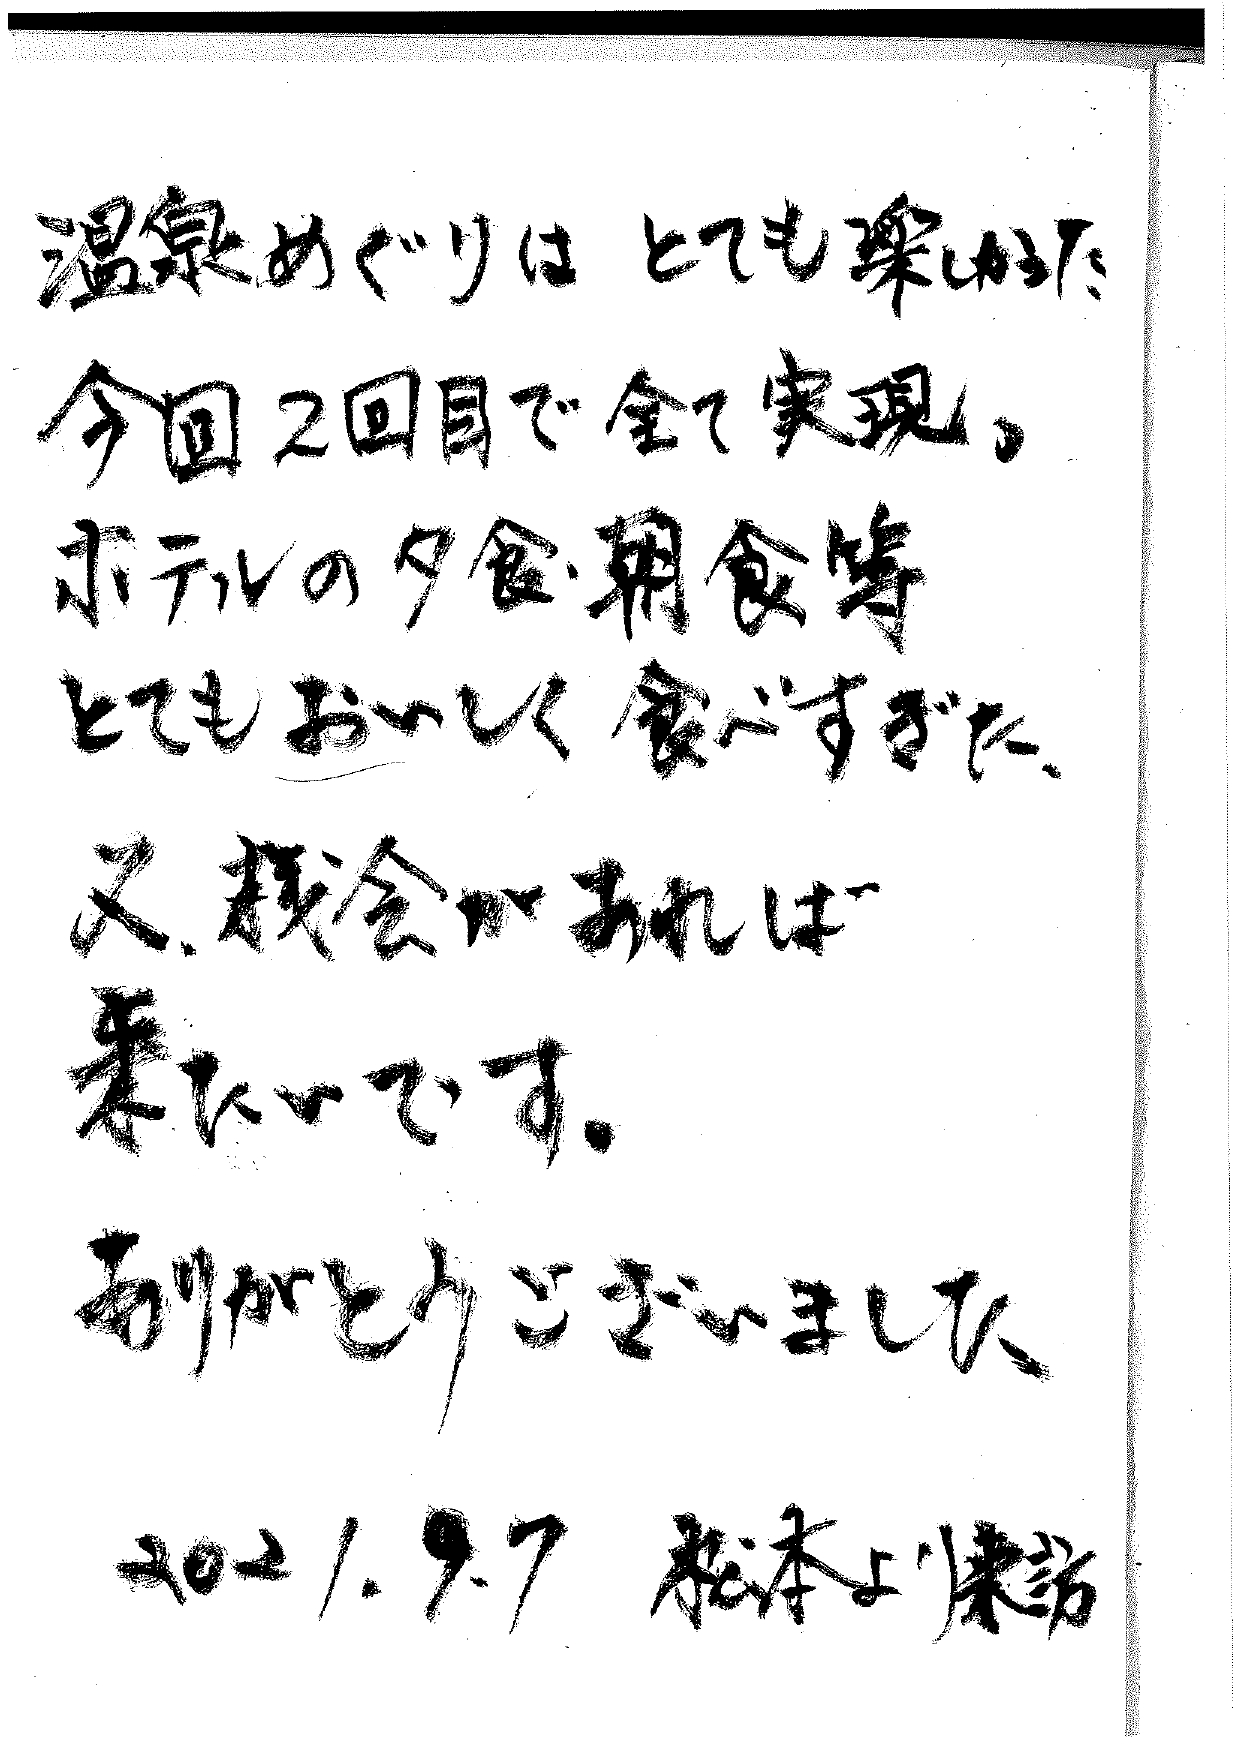 温泉めぐりは とても楽しかった
今回2回目で全て実現。
ホテルの夕食・朝食等
とてもおいしく食べすぎた、
又、機会があれば
来たいです.
ありがとうございました、
2021.9.7 松本より来訪